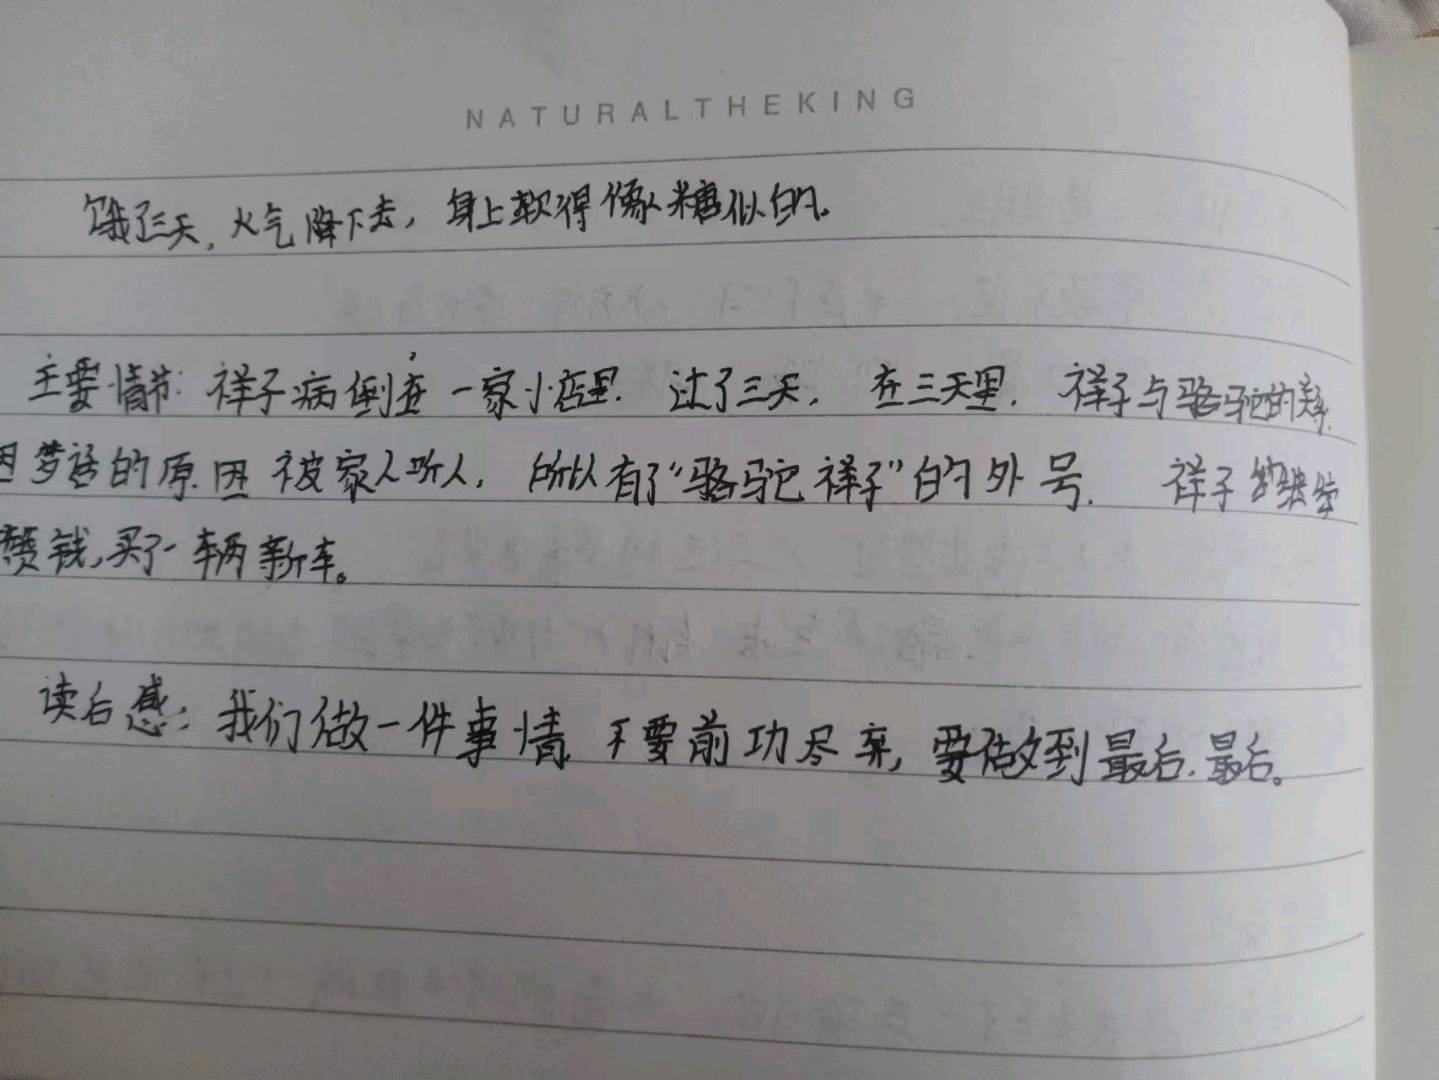 NATURALTHEKING
饿了三天，火气降下去，身上软得像糖似的。
主要情节：祥子病倒在一家小店里．过了三天，在三天里，祥子与骆驼的关系，
因梦话的原因被家人听人，所以有了“骆驼祥子”的外号．祥子
钱，买了一辆新车。
读后感：我们做一件事情，不要前功尽弃，要做到最后．最后。